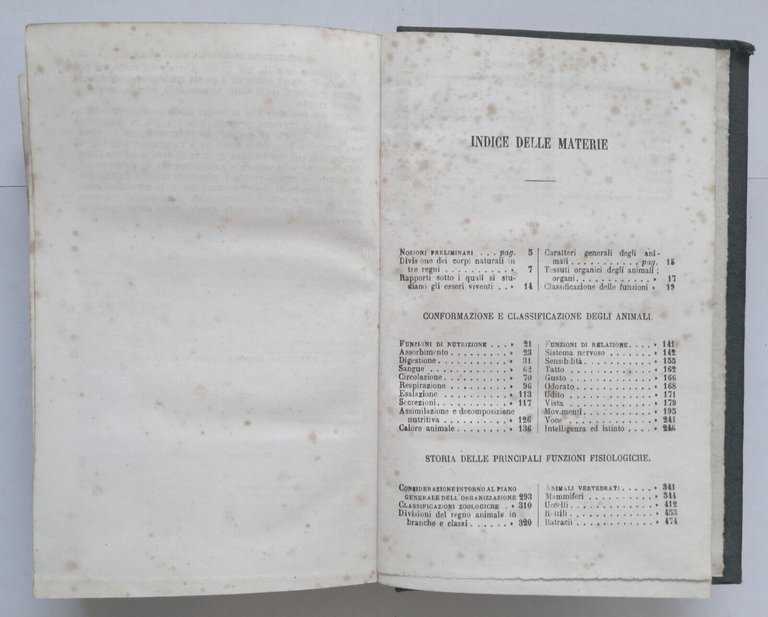 INDICE DELLE MATERIE
NOZIONI PRELIMINARI . . . pag. 5
Divisione dei corpi naturali in
tre regni . . . . . . . . . . » 7
Rapporti sotto i quali si stu-
diano gli esseri viventi . . » 14
Caratteri generali degli ani-
mali . . . . . . . . . . . pag. 15
Tessuti organici degli animali;
organi. . . . . . . . . . . » 17
Classificazione delle funzioni » 19
CONFORMAZIONE E CLASSIFICAZIONE DEGLI ANIMALI.
FUNZIONI DI NUTRIZIONE . . . » 21
Assorbimento . . . . . . . . » 23
Digestione . . . . . . . . . » 31
Sangue . . . . . . . . . . . » 62
Circolazione . . . . . . . . » 70
Respirazione . . . . . . . . » 96
Esalazione . . . . . . . . . » 113
Secrezioni. . . . . . . . . . » 117
Assimilazione e decomposizione
nutritiva . . . . . . . . . » 126
Calore animale . . . . . . . » 136
FUNZIONI DI RELAZIONE. . . . » 141
Sistema nervoso . . . . . . . » 142
Sensibilità. . . . . . . . . . » 155
Tatto . . . . . . . . . . . . » 162
Gusto . . . . . . . . . . . . » 166
Odorato . . . . . . . . . . . » 168
Udito . . . . . . . . . . . . » 171
Vista . . . . . . . . . . . . » 179
Movimenti. . . . . . . . . . » 195
Voce . . . . . . . . . . . . » 241
Intelligenza ed istinto . . . . » 246
STORIA DELLE PRINCIPALI FUNZIONI FISIOLOGICHE.
CONSIDERAZIONE INTORNO AL PIANO
GENERALE DELL'ORGANIZZAZIONE » 293
CLASSIFICAZIONI ZOOLOGICHE . » 310
Divisioni del regno animale in
branche e classi . . . . . . » 320
ANIMALI VERTEBRATI . . . . . » 341
Mammiferi . . . . . . . . . . » 344
Uccelli . . . . . . . . . . . » 412
Rettili . . . . . . . . . . . » 453
Batracii . . . . . . . . . . . » 474